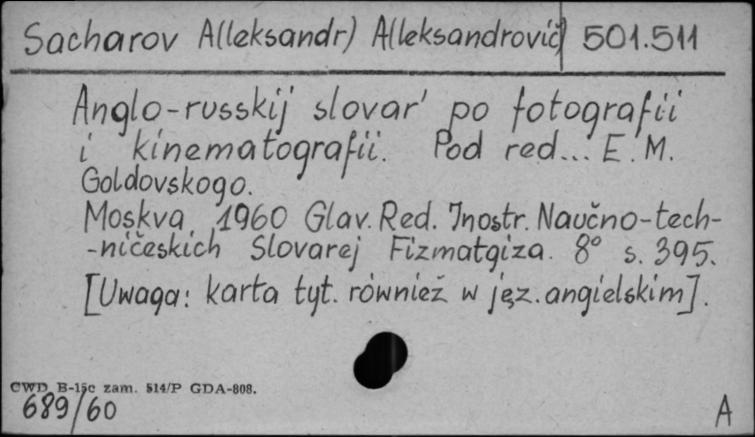 Sacharov A(leksandr) A(leksandrovič) 501.511
Anglo-russkij slovar' po fotografii
i kinematografii. Pod red... E.M.
Goldovskogo.
Moskva, 1960 Glav. Red. Inostr. Naučno-tech-
-ničeskich Slovarej Fizmatgiza. 8° s. 395.
[Uwaga: karta tyt. również w jęz. angielskim].
CWD B-15c zam. 514/P GDA-808.
689/60 A